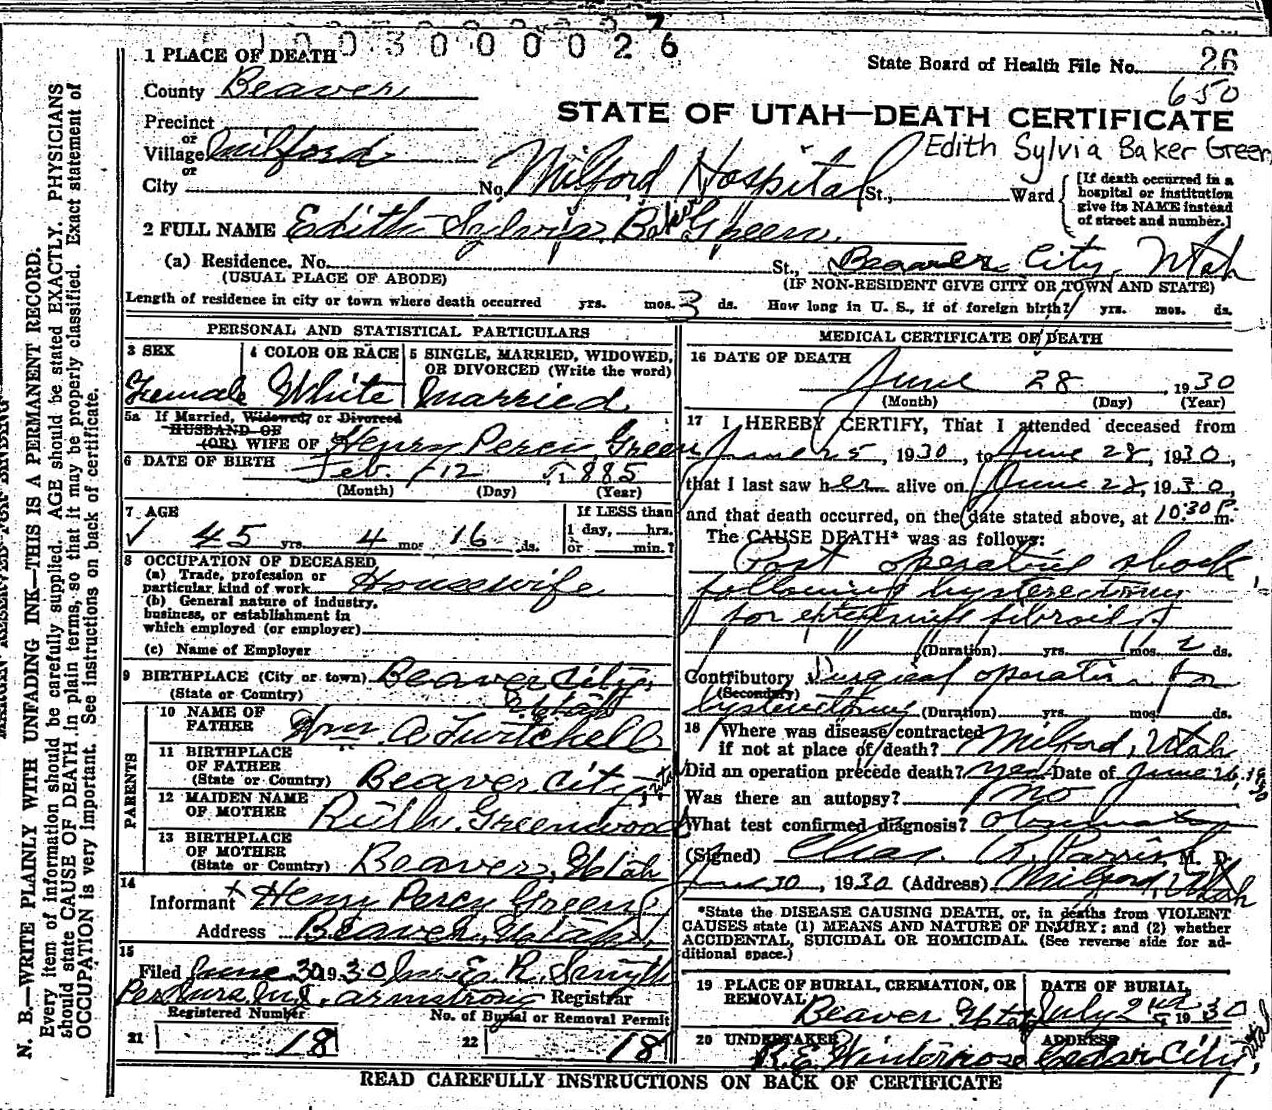 1003000026
1 PLACE OF DEATH
State Board of Health File No. 26
650
County Beaver
STATE OF UTAH—DEATH CERTIFICATE
Precinct
or
Village Milford
Edith Sylvia Baker Green
or
City No. Milford Hospital St., Ward
[If death occurred in a hospital or institution give its NAME instead of street and number.]
2 FULL NAME Edith Sylvia Baker Green
(a) Residence. No. St., Beaver City, Utah
(USUAL PLACE OF ABODE) (IF NON-RESIDENT GIVE CITY OR TOWN AND STATE)
Length of residence in city or town where death occurred yrs. mos. 3 ds. How long in U. S., if of foreign birth? yrs. mos. ds.
PERSONAL AND STATISTICAL PARTICULARS
3 SEX Female
4 COLOR OR RACE White
5 SINGLE, MARRIED, WIDOWED, OR DIVORCED (Write the word) Married
5a If Married, Widowed, or Divorced
HUSBAND OF
(OR) WIFE OF Henry Percy Green
6 DATE OF BIRTH Feb. 12 1885
(Month) (Day) (Year)
7 AGE 45 yrs. 4 mos. 16 ds.
If LESS than
1 day, hrs.
or min.?
8 OCCUPATION OF DECEASED
(a) Trade, profession or
particular kind of work Housewife
(b) General nature of industry,
business, or establishment in
which employed (or employer)
(c) Name of Employer
9 BIRTHPLACE (City or town) Beaver City,
(State or Country) Utah
PARENTS
10 NAME OF
FATHER Wm. A Twitchell
11 BIRTHPLACE
OF FATHER
(State or Country) Beaver City, Utah
12 MAIDEN NAME
OF MOTHER Ruth Greenwood
13 BIRTHPLACE
OF MOTHER
(State or Country) Beaver, Utah
14
Informant Henry Percy Green
Address Beaver, Utah
15
Filed June 30 1930 E. R. Smyth
Armstrong Registrar
Registered Number No. of Burial or Removal Permit
21 18 22 18
MEDICAL CERTIFICATE OF DEATH
16 DATE OF DEATH
June 28, 1930
(Month) (Day) (Year)
17 I HEREBY CERTIFY, That I attended deceased from
June 25, 1930, to June 28, 1930,
that I last saw her alive on June 28, 1930,
and that death occurred, on the date stated above, at 10:30 P. m.
The CAUSE DEATH* was as follows:
Post operative shock
following hysterectomy
for extensive fibroids
(Duration) yrs. mos. 2 ds.
Contributory Surgical operation for
(Secondary)
hysterectomy (Duration) yrs. mos. ds.
18 Where was disease contracted
if not at place of death? Milford, Utah
Did an operation precede death? yes Date of June 26, 1930
Was there an autopsy? no
What test confirmed diagnosis? Observation
(Signed) Chas. R. Parrish, M. D.
June 30, 1930 (Address) Milford, Utah
*State the DISEASE CAUSING DEATH, or, in deaths from VIOLENT
CAUSES state (1) MEANS AND NATURE OF INJURY; and (2) whether
ACCIDENTAL, SUICIDAL OR HOMICIDAL. (See reverse side for ad-
ditional space.)
19 PLACE OF BURIAL, CREMATION, OR
REMOVAL
Beaver Utah
DATE OF BURIAL,
July 2nd 1930
20 UNDERTAKER
R.E. Winterrose
ADDRESS
Cedar City, Utah
READ CAREFULLY INSTRUCTIONS ON BACK OF CERTIFICATE
N. B.—WRITE PLAINLY WITH UNFADING INK—THIS IS A PERMANENT RECORD.
Every item of information should be carefully supplied. AGE should be stated EXACTLY. PHYSICIANS
should state CAUSE OF DEATH in plain terms, so that it may be properly classified. Exact statement of
OCCUPATION is very important. See instructions on back of certificate.